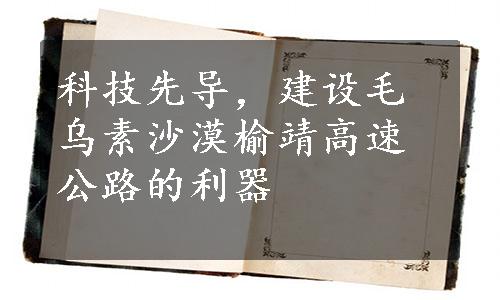 科技先导，建设毛
乌素沙漠榆靖高速
公路的利器